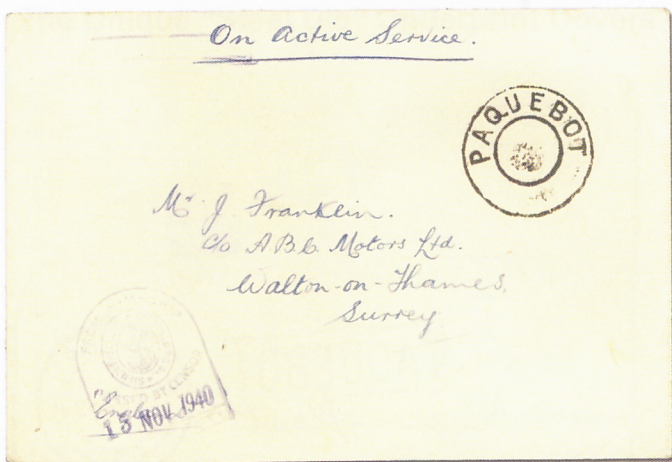 On Active Service.
PAQUEBOT
Mr J Franklin.
c/o A.B.C. Motors Ltd.
Walton-on-Thames.
Surrey
PASSED BY CENSOR
England
13 NOV 1940